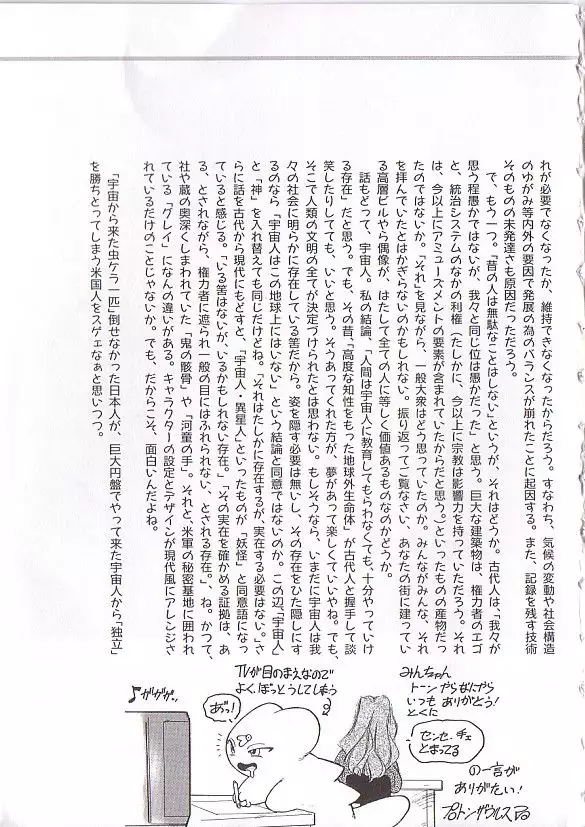 れが必要でなくなったか、維持できなくなったからだろう。すなわち、気候の変動や社会構造
のゆがみ等内外の要因で発展の為のバランスが崩れたことに起因する。また、記録を残す技術
そのものの未発達さも原因だっただろう。
で、もう一つ。「昔の人は無駄なことはしない」というが、それはどうか。古代人は「我々が
思う程愚かではないが、我々と同じ位は愚かだった」と思う。巨大な建築物は、権力者のエゴ
と、統治システムのなかの利権（たしかに、今以上に宗教は影響力を持っていただろう。それ
は、今以上にアミューズメントの要素が含まれていたからだと思う。）といったものの産物だっ
たのではないか。「それ」を見ながら、一般大衆はどう思っていたのか。みんながみんな、それ
を拝んでいたとはかぎらないのかもしれない。振り返ってご覧なさい、あなたの街に建ってい
る高層ビルやら偶像が、はたして全ての人に等しく価値あるものなのかどうか。
話もどって、宇宙人。私の結論、「人間は宇宙人に教育してもらわなくても、十分やっていけ
る存在」だと思う。でも、その昔「高度な知性をもった地球外生命体」が古代人と握手して談
笑したりしても、いいと思う。そうあってくれた方が、夢があって楽しくていいやね。でも、
そこで人類の文明の全てが決定づけられたとは思わない。もしそうなら、いまだに宇宙人は我
々の社会に明らかに存在している筈だから。姿を隠す必要は無いし、その存在をひた隠しにす
るのなら「宇宙人はこの地球上にはいない」という結論と同意ではないのか。この辺、「宇宙人」
と「神」を入れ替えても同じだけどね。「それはたしかに存在するが、実在する必要はない。」さ
らに話を古代から現代にもどすと、「宇宙人・異星人」といったものが「妖怪」と同意語になっ
ていると感じる。「いる筈はないが、いるかもしれない存在。」「その実在を確かめる証拠は、あ
る、とされながら、権力者に遮られ一般の目にはふれられない、とされる存在。」ね。かつて、
社や蔵の奥深くしまわれていた「鬼の骸骨」や「河童の手」。それと、米軍の秘密基地に囲われ
ている「グレイ」になんの違いがある。キャラクターの設定とデザインが現代風にアレンジさ
れているだけのことじゃないか。でも、だからこそ、面白いんだよね。
「宇宙から来た虫ケラ一匹」倒せなかった日本人が、巨大円盤でやって来た宇宙人から「独立」
を勝ちとってしまう米国人をスゲェなぁと思いつつ。
みんちゃん
トーンやらなにやら
いつも ありがとう!
とくに
センセ、チェ
とまってる
の一言が
ありがたい!
プロトンザウルス
TVが目のまえなので
よく、ぼっとうしてしまう
あっ!
♪ガガガ‥